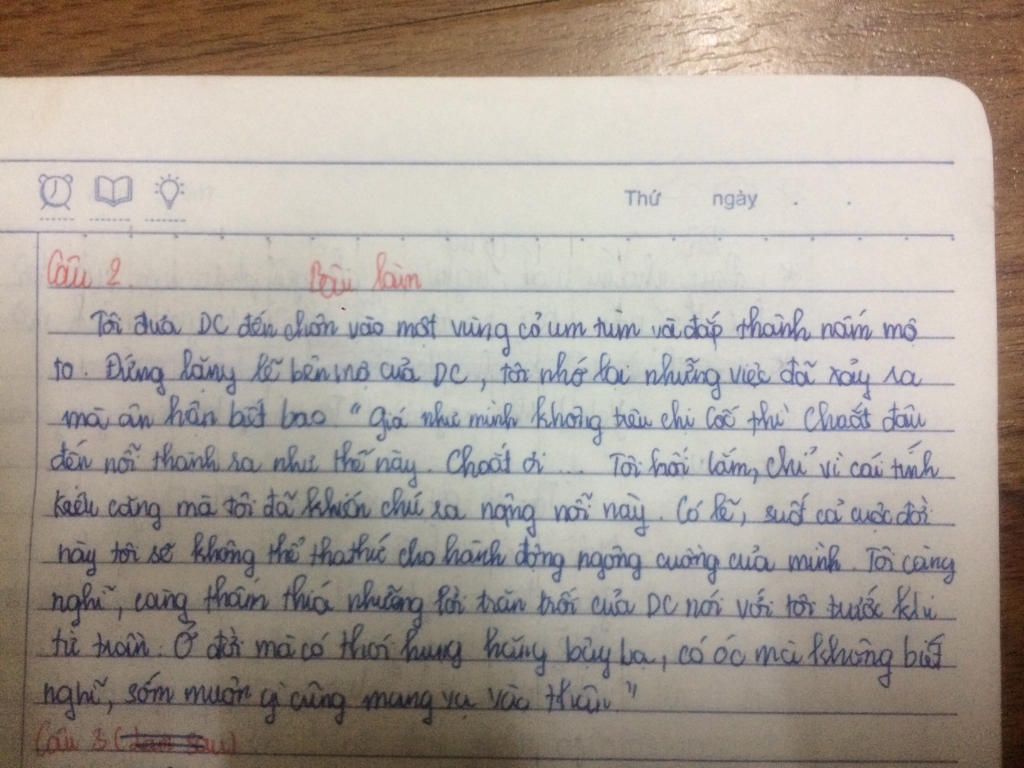 Thứ ngày . .
Câu 2. Bài làm
Tôi đưa DC đến chôn vào một vùng cỏ um tùm và đắp thành nấm mộ
to. Đứng lặng lẽ bên mộ của DC, tôi nhớ lại những việc đã xảy ra
mà ân hận biết bao "Giá như mình không trêu chị Cốc thì Choắt đâu
đến nỗi thành ra như thế này. Choắt ơi... Tôi hối lắm, chỉ vì cái tính
kiêu căng mà tôi đã khiến chú ra nông nỗi này. Có lẽ, suốt cả cuộc đời
này tôi sẽ không thể tha thứ cho hành động ngông cuồng của mình. Tôi càng
nghĩ, càng thấm thía những lời trăn trối của DC nói với tôi trước khi
từ trần. Ở đời mà có thói hung hăng bậy bạ, có óc mà không biết
nghĩ, sớm muộn gì cũng mang vạ vào thân."
Câu 3